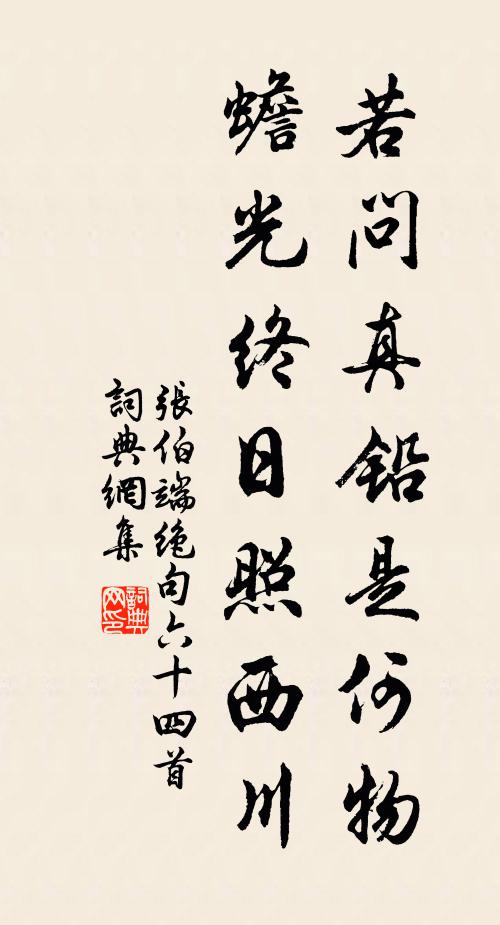 若問真鉛是何物
蟾光終日照西川
張伯端絶句六十四首
詞典網集
詞典网印